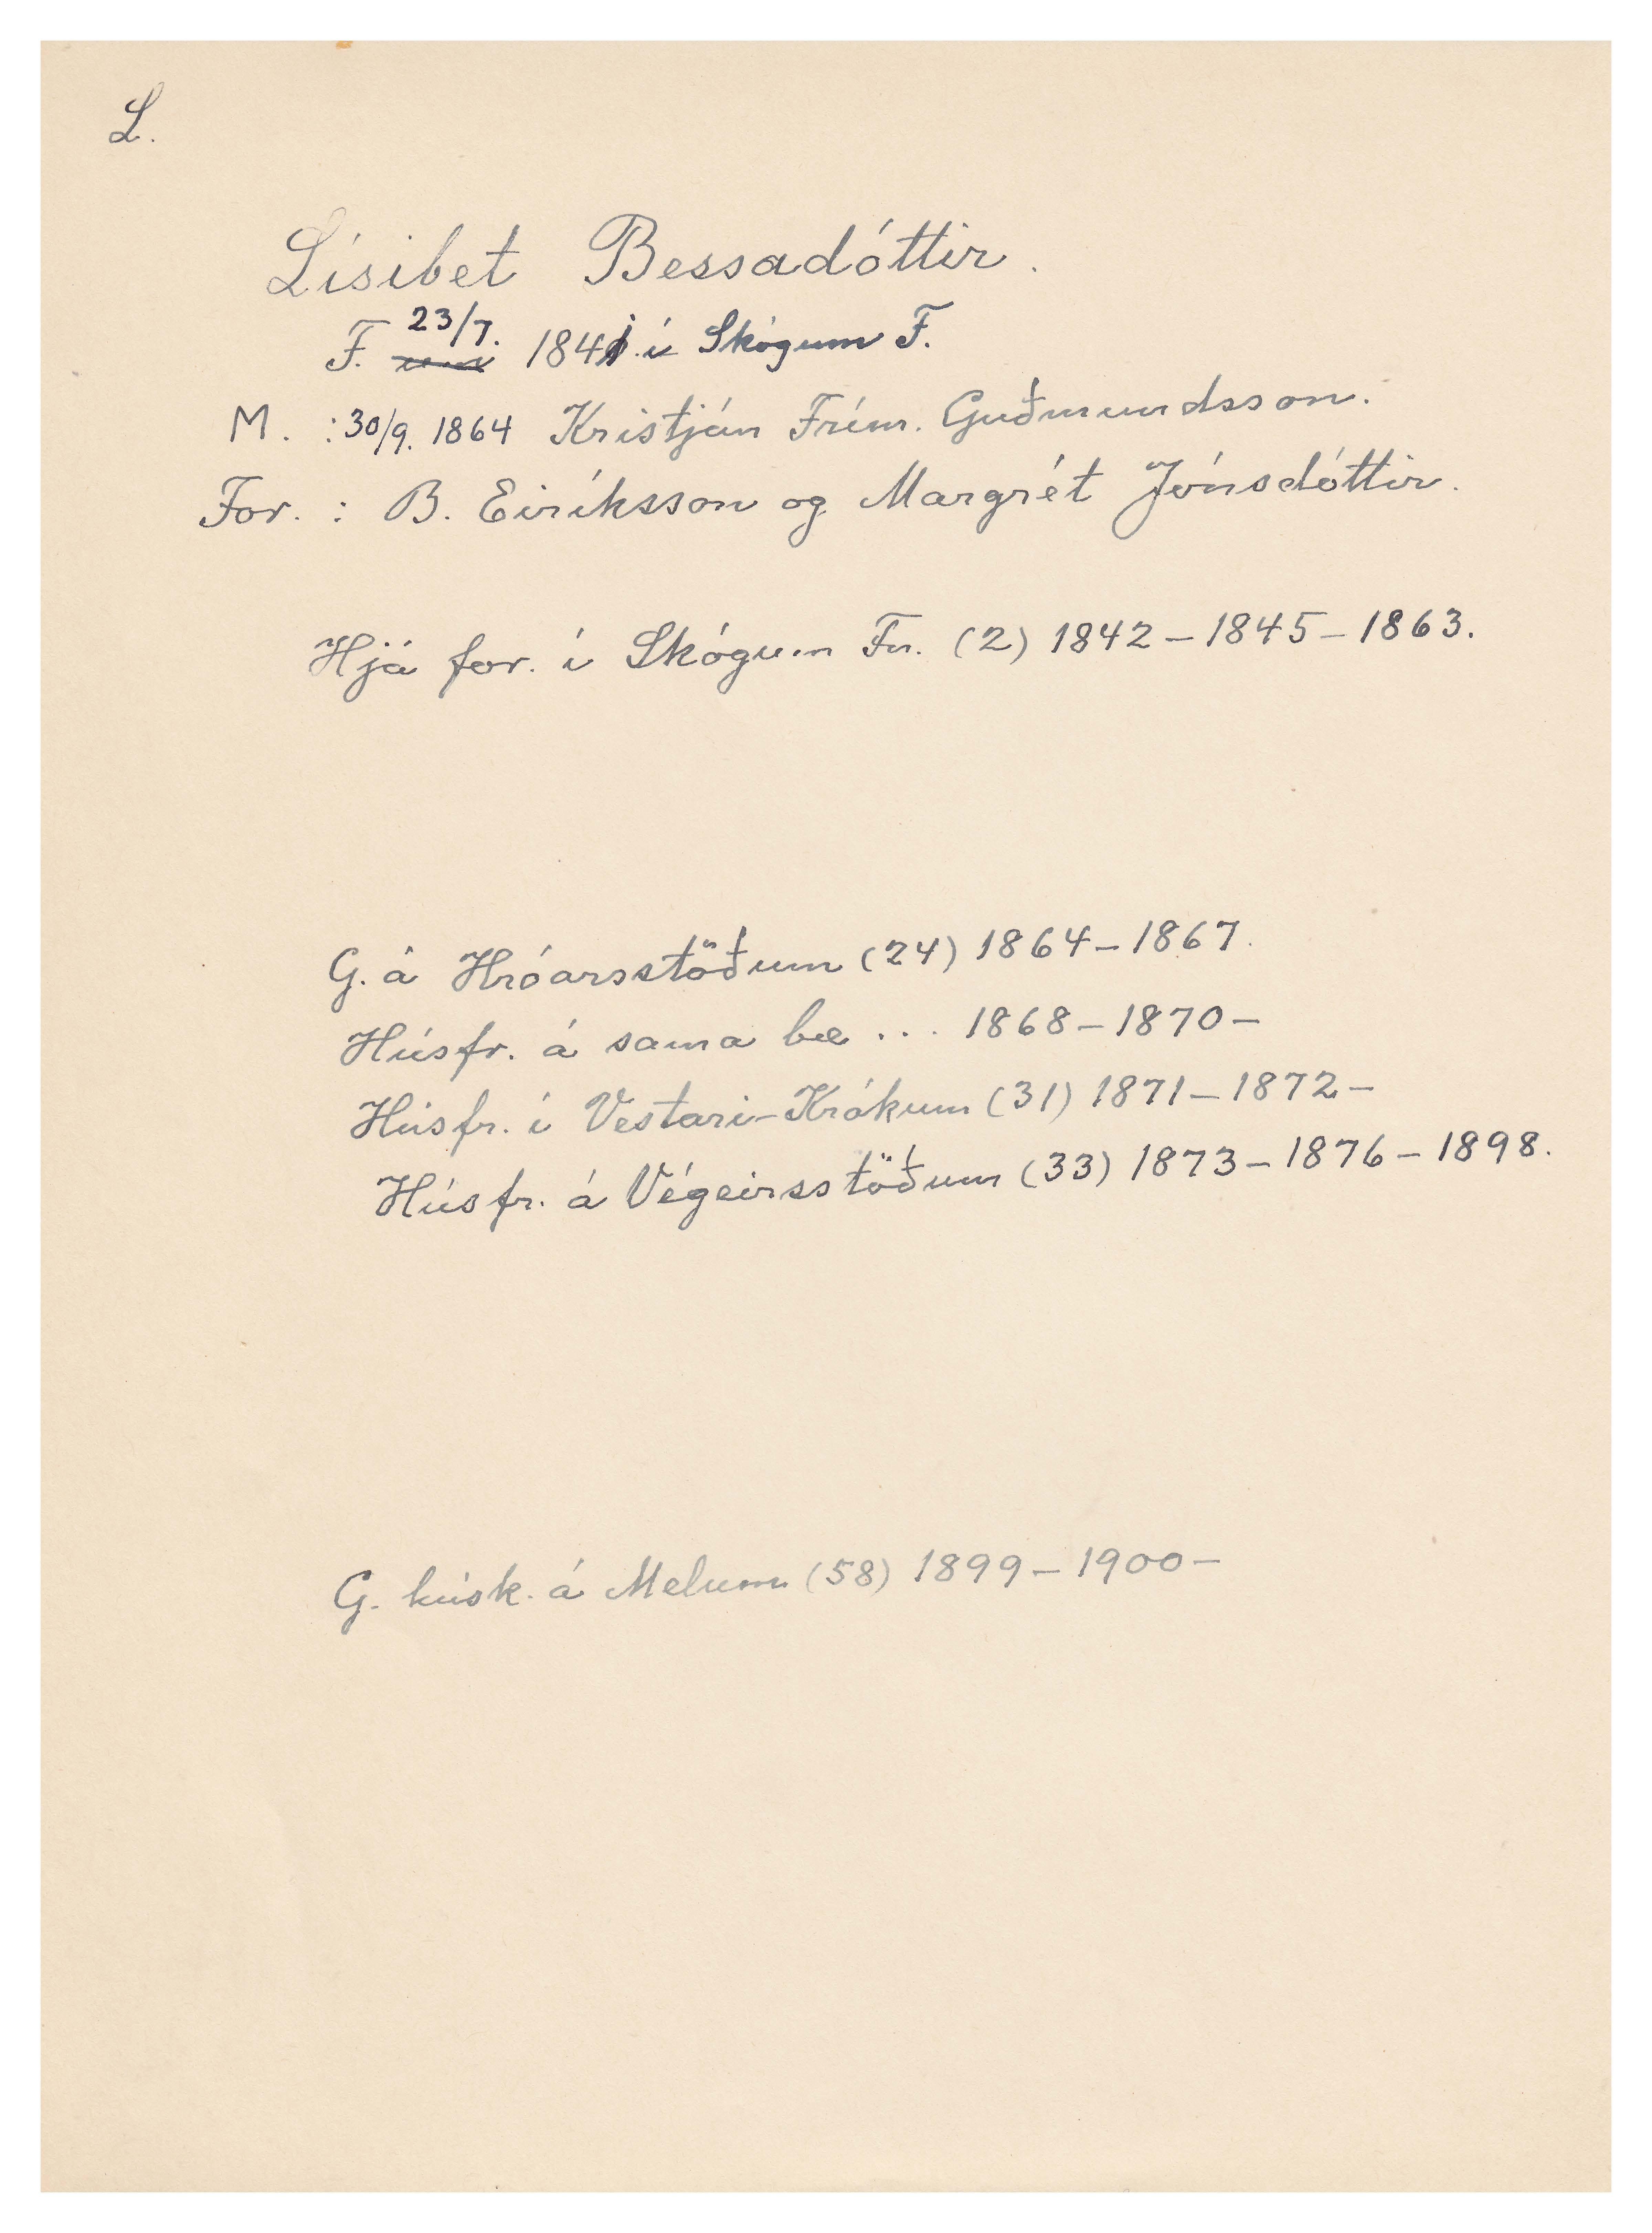 L.
Lísibet Bessadóttir.
F. 23/7. 1841 í Skógum F.
M. : 30/9. 1864 Kristján Frím. Guðmundsson.
For. : B. Eiríksson og Margrét Jónsdóttir.
Hjá for. í Skógum Fn. (2) 1842 – 1845 – 1863.
G. á Hróarsstöðum (24) 1864 – 1867.
Húsfr. á sama bæ ... 1868 – 1870 –
Húsfr. í Vestari-Krókum (31) 1871 – 1872 –
Húsfr. á Végeirsstöðum (33) 1873 – 1876 – 1898.
G. húsk. á Melum (58) 1899 – 1900 –